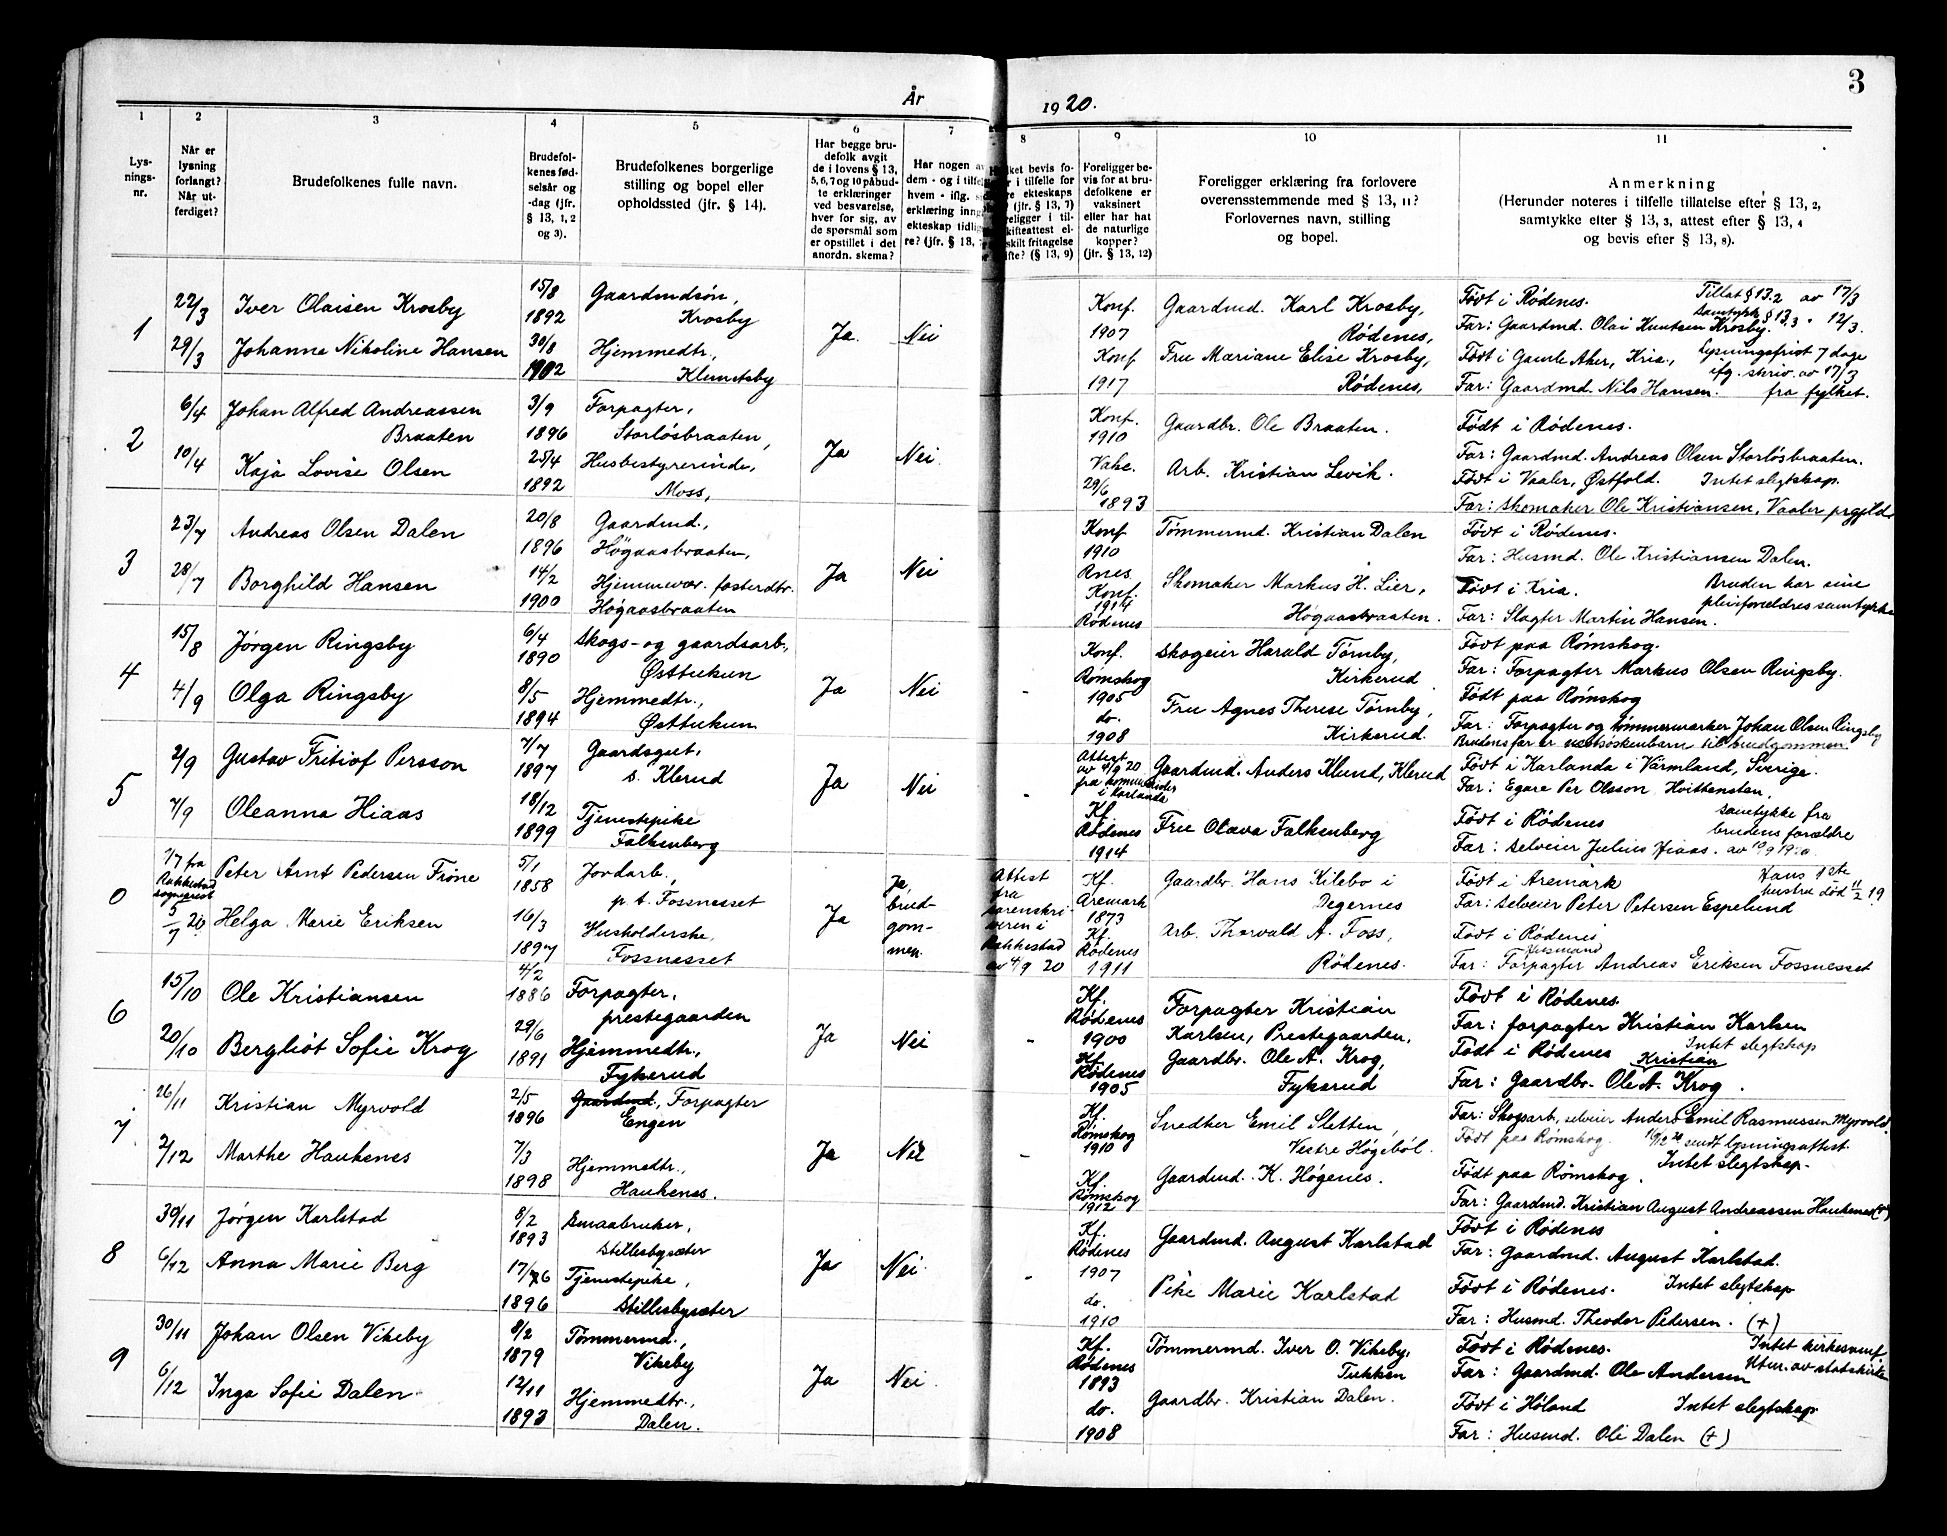 3
År 1920.
1 2 3 4 5 6 7 8 9 10 11
Lys-
nings-
nr.
Når er
lysning
forlangt?
Når ut-
ferdiget?
Brudefolkenes fulle navn.
Brudefol-
kenes fød-
selsår og
-dag (jfr.
§ 13, 1, 2
og 3).
Brudefolkenes borgerlige
stilling og bopel eller
opholdssted (jfr. § 14).
Har begge bru-
defolk avgit
de i lovens § 13,
5, 6, 7 og 10 påbud-
te erklæringer
ved besvarelse,
hver for sig, av
de spørsmål som
er opstillet i det
anordn. skema?
Har nogen av
dem - og i tilfel
hvem - iflg. s
erklæring inng
ekteskap tidlig
re? (jfr. § 13, 7
ket bevis fo-
r i tilfelle for
re ekteskaps
(jfr. § 13, 7)
religger i til-
kifteattest el-
skilt fritagelse
ifte? (§ 13, 9)
Foreligger be-
vis for at bru-
defolkene er
vaksinert
eller har hat
de naturlige
kopper?
(jfr. § 13, 12)
Foreligger erklæring fra forlovere
overensstemmende med § 13, 11?
Forlovernes navn, stilling
og bopel.
Anmerkning
(Herunder noteres i tilfelle tillatelse efter § 13, 2,
samtykke efter § 13, 3, attest efter § 13, 4
og bevis efter § 13, 8).
1
22/3
29/3
Iver Olaisen Krosby
Johanne Nikoline Hansen
15/8
1892
30/8
1902
Gaardmdsøn,
Krosby
Hjemmedtr,
Klundsby
Ja.
Nei
Konf.
1907
Konf
1917
Gaardmd. Karl Krosby,
Rødenes,
Fru Mariane Elise Krosby,
Rødenes,
Født i Rødenes. Tillat § 13.2 av 17/3
samtykk § 13.3 " 12/3.
Far: Gaardmd. Olai Knutsen Krosby.
Født i Gamle Aker, Kria., Lysningsfrist 7 dage
ifg. skriv. av 17/3
Far: Gaardmd. Nils Hansen. fra fylket.
2
6/4
10/4
Johan Alfred Andreassen
Braaten
Kaja Lovise Olsen
3/9
1896
25/4
1892
Forpagter,
Storlösbraaten,
Husbestyrerinde,
Moss,
Ja
Nei.
Konf.
1910
Vakc.
29/6
1893
Gaardbr. Ole Braaten.
Arb. Kristian Levik.
Født i Rødenes.
Far: Gaardmd. Andreas Olsen Storlösbraaten.
Født i Vaaler, Østfold. Intet slegtskap.
Far: Skomaker Ole Kristiansen, Vaaler prgjeld
3
23/7
28/7
Andreas Olsen Dalen
Borghild Hansen
20/8
1896
14/2
1900
Gaardmd.,
Högaasbraaten,
Hjemmevær. fosterdtr.
Högaasbraaten
Ja
Nei
Konf
1910
Rnes.
Konf.
1914
Rødenes
Tømmermd. Kristian Dalen
Skomaker Markus H. Lier,
Högaasbraaten.
Født i Rødenes.
Far: Husmd. Ole Kristiansen Dalen.
Født i Kria. Bruden har sine
pleiforældres samtykke
Far: Slagter Martin Hansen.
4
15/8
4/9
Jørgen Ringsby
Olga Ringsby
6/4
1890
8/5
1894
Skogs- og gaardsarb.,
Østtukun
Hjemmedtr.,
Østtukun
Ja
Nei
-
Konf.
Rømskog
1905
do.
1908
Skogeier Harald Tørnby,
Kirkerud
Fru Agnes Therese Tørnby,
Kirkerud.
Født paa Rømskog.
Far: Forpagter Markus Olsen Ringsby.
Født paa Rømskog
Far: Forpagter og tømmermerker Johan Olsen Ringsby
Brudens far er næstsøskenbarn til brudgommen.
5
2/9
7/9
Gustav Fritiof Persson
Oleanna Hiaas
7/7
1897
18/12
1899
Gaardsgut,
s. Klerud
Tjenestepike
Falkenberg
Ja
Nei
-
Attest
av 4/9 20
i Karlanda
Kf.
Rødenes
1914
Gaardmd. Anders Klund, Klerud
Fru Olava Falkenberg
Født i Karlanda i Värmland, Sverige.
Far: Egare Per Olsson Hvittensten.
Født i Rødenes samtykke fra
brudens forældre
Far: selveier Julius Hiaas. av 10/9 1920.
0
7/7 fra
Rakkestad
sogneprest
5/7 20
Peter Arnt Pedersen Frøne
Helga Marie Eriksen
5/1
1858
16/3
1897
Jordarb.,
p. t. Fossnesset
Husholderske,
Fossnesset
Ja
Ja,
brud-
gom-
men.
Attest
fra
sorenskri-
veren i
Rakkestad
av 4/9 20
Kf.
Aremark
1873
Kf.
Rødenes
1911
Gaardbr. Hans Kilebo i
Degernes
Arb. Thorvald A. Foss,
Rødenes.
Født i Aremark Hans 1ste
hustru død 11/2 19
Far: Selveier Peter Petersen Espelund
Født i Rødenes
Husmand
Far: Forpagter Andreas Eriksen Fossnesset
6
15/10
20/10
Ole Kristiansen
Bergliot Sofie Krog
4/2
1886
29/6
1891
Forpagter,
prestegaarden
Hjemmedtr.,
Fykerud
Ja
Nei
-
Kf.
Rødenes
1900
Kf.
Rødenes
1905
Forpagter Kristian
Karlsen, Prestegaarden,
Gaardbr. Ole A. Krog,
Fykerud
Født i Rødenes.
Far: forpagter Kristian Karlsen
Født i Rødenes Intet slegtskap
Kristian
Far: Gaardbr. Ole A. Krog.
7
26/11
2/12
Kristian Myrvold
Marthe Haukenes
2/5
1896
7/3
1898
Gaardmd., Forpagter
Engen
Hjemmedtr.,
Haukenes.
Ja
Nei
-
Kf.
Rømskog
1910
Kf.
Rømskog
1912
Snedker Emil Sletten,
Vestre Høgebøl.
Gaardmd. K. Høgenes.
Far: Skogsarb., selveier Anders Emil Rasmussen Myrvold.
Født paa Rømskog. 16/12 20 sendt lysningsattest.
Intet slegtskap.
Født paa Rømskog.
Far: Gaardmd. Kristian August Andreassen Haukenes (+)
8
30/11
6/12
Jørgen Karlstad
Anna Marie Berg
8/2
1893
17/6
1896
Smaabruker,
Stillesbysæter
Tjenestepike,
Stillesbysæter
Ja
Nei.
-
Kf.
Rødenes
1907
do.
1910
Gaardmd. August Karlstad
Pike Marie Karlstad
Født i Rødenes
Far: Gaardmd. August Karlstad.
Født i Rødenes. Intet slegtskap
Far: Husmd. Theodor Pedersen. (+)
9
30/11
6/12
Johan Olsen Vikeby
Inga Sofie Dalen.
8/2
1879
12/11
1893
Tømmermd.,
Vikeby
Hjemmedtr.,
Dalen.
Ja
Nei.
Kf.
Rødenes
1893
do.
1908
Tømmermd. Iver O. Vikeby.
Tukken
Gaardbr. Kristian Dalen.
Født i Rødenes. Intet kirkesamf
Utm. av statskirke
Far: Gaardmd. Ole Andersen
Født i Høland Intet slegtskap
Far: Husmd. Ole Dalen (+)